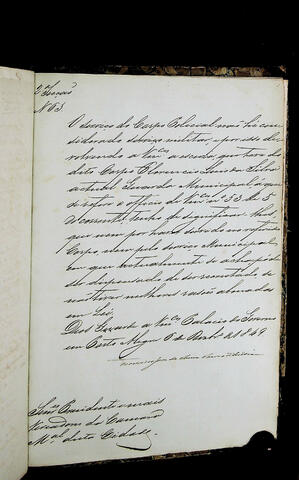 2ª Secção
N 65.
O serviço do Corpo Policial não foi con
siderado serviço militar, e por isso de
volvendo a Vmces a escusa, que teve do
dito Corpo Florencio José da Silva
actual Guarda Municipal, a que
se refere o officio de Vmces nº 53 de 3
do corrente, tenho a significar-lhes,
que nem por haver servido no referido
Corpo, nem pelo serviço Municipal,
em que actualmente se acha pode
ser dispensado de ser
melhores razões
em Lei.
Deos Guarde a Vmces Palacio do Governo
em Porto Alegre 6 de de 1849
Senres Presidente e mais
Vereadores da Camara
Mal desta Cidade